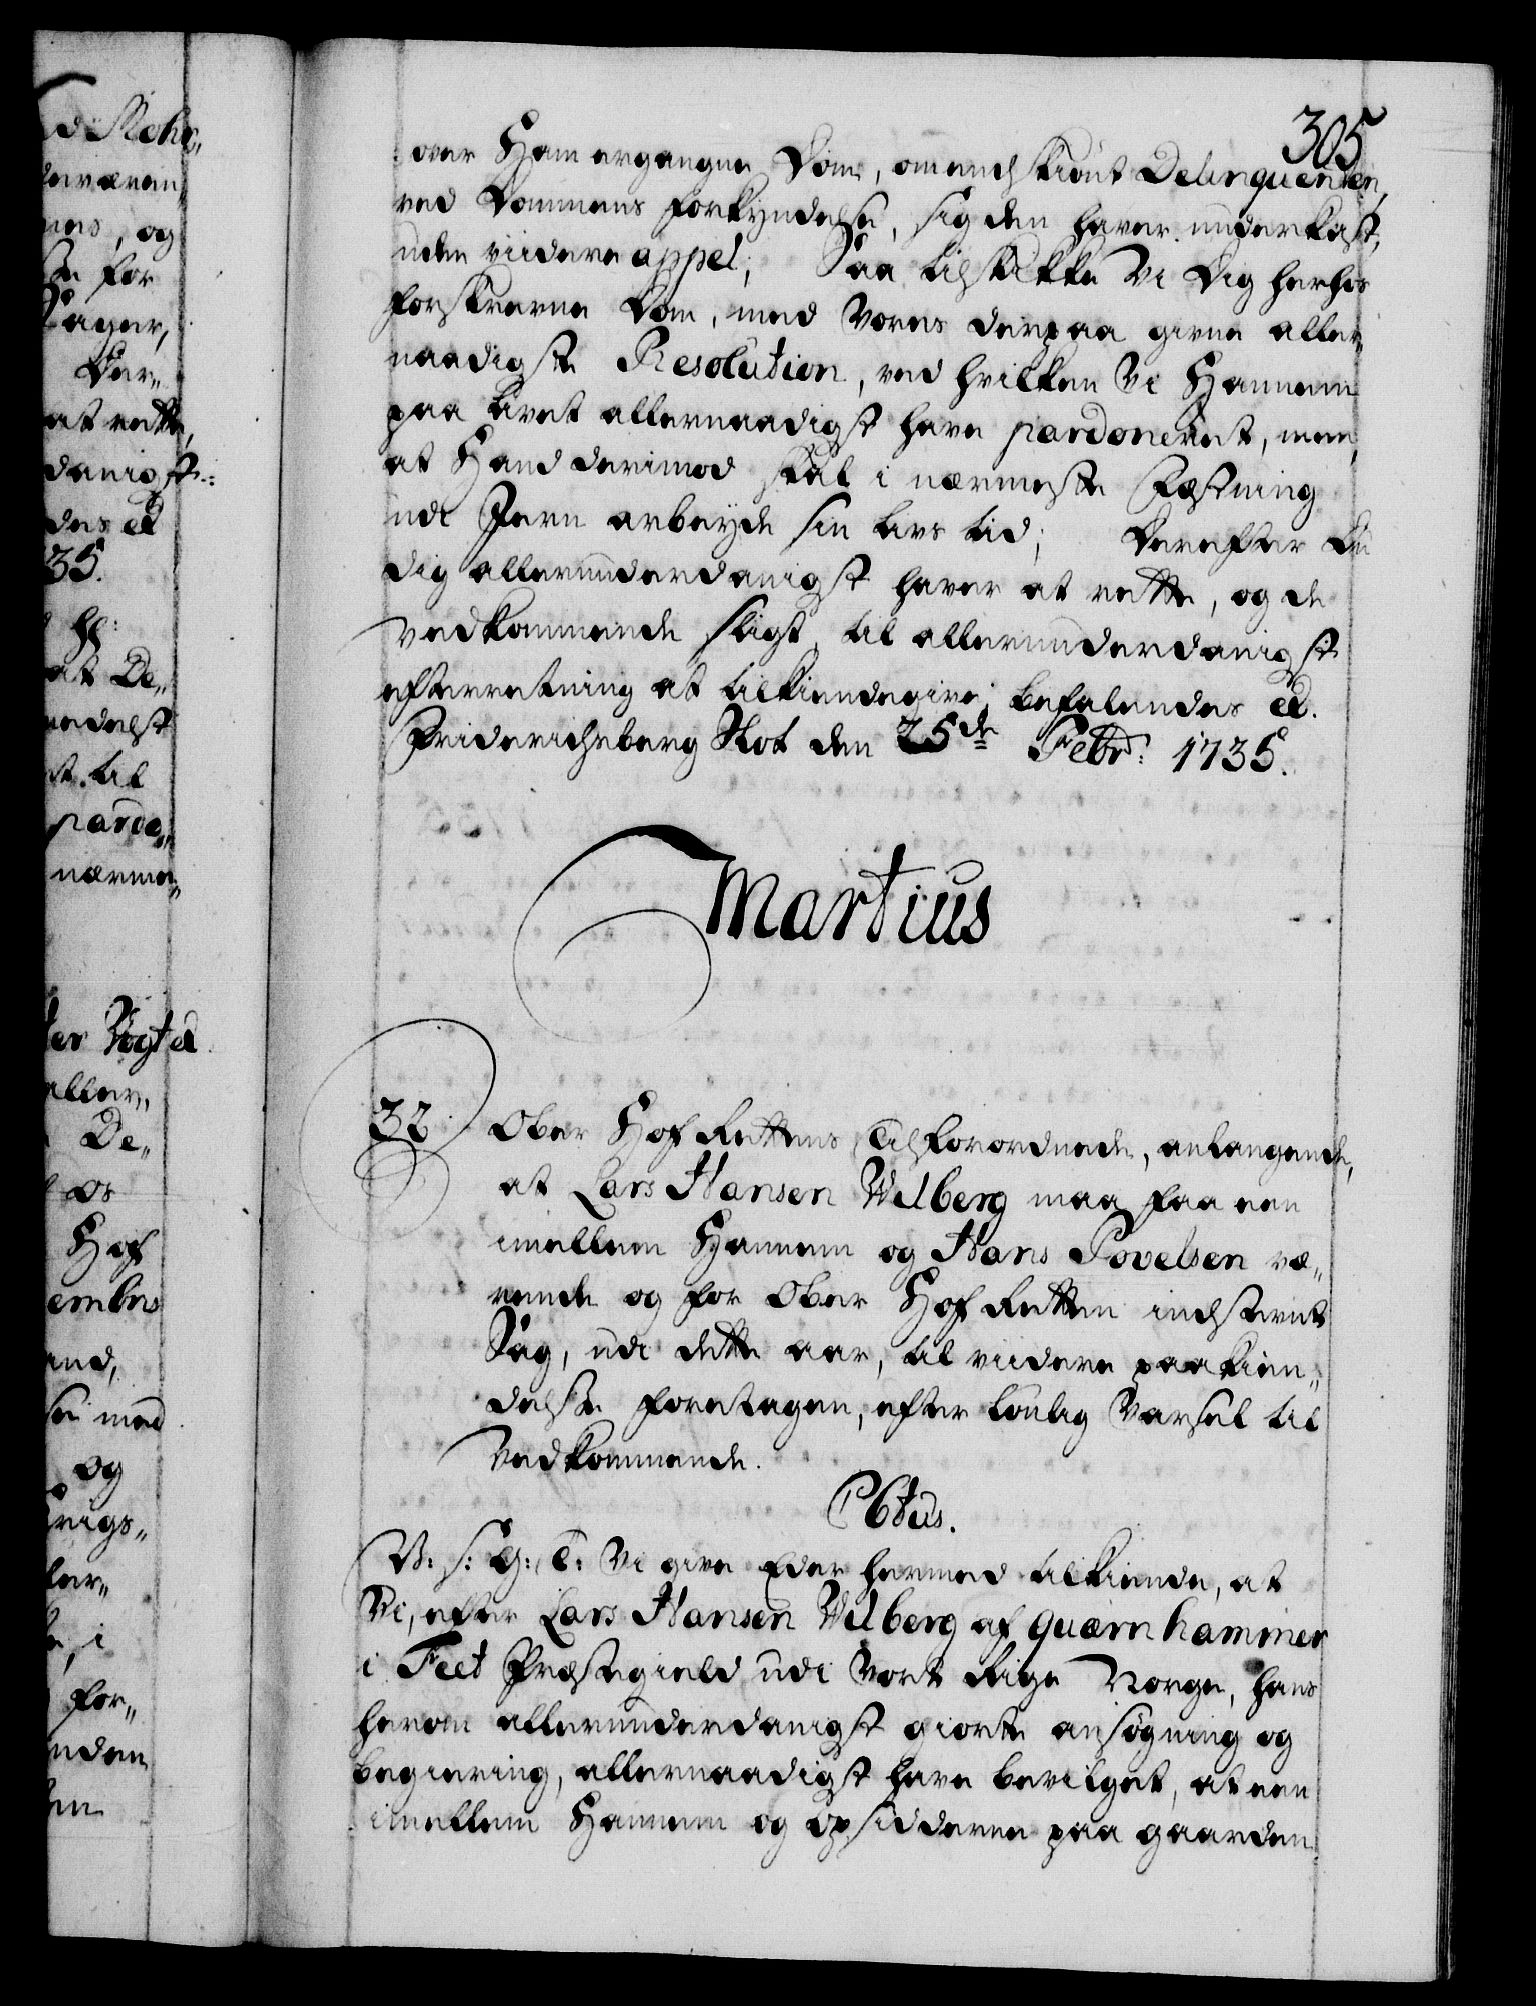 305
over Ham ergangne Dom, omendskiønt Delinquenten,
ved Dommens forkyndelse, sig den haver underkast,
uden viidere appel; Saa tilskikke Vi Dig herhos
forskrevne Dom, med Vores derpaa givne aller-
naadigste Resolution, ved hvilken Vi Hannem
paa Livet allernaadigst have pardoneret, men
at Hand derimod skal i nærmeste Fæstning
udi Jern arbeyde sin Livs tid; Derefter Du
dig allerunderdanigst haver at rette, og de
Vedkommende sligt, til allerunderdanigst
efterretning at tilkiendegive; befalendes etc.
Friderichsberg Slot den 25de Febr: 1735.
Martius
32 Ober Hof Rettens Tilforordnede, anlangende,
at Lars Hansen Wilberg maa faa een
imellem Hannem og Hans Povelsen væ-
rende og for Ober Hof Retten indstevnt
Sag, udi dette aar, til viidere paakien-
delse foretagen, efter lovlig Varsel til
Vedkommende.
C6tus.
V: s: G: T: Vi give Eder hermed tilkiende, at
Vi, efter Lars Hansen Wilberg af Quærnhammer
i Feet Præstegield udi Vort Rige Norge, hans
herom allerunderdanigst giorte ansøgning og
begiering, allernaadigst have bevilget, at een
imellem Hannem og Opsidderne paa gaarden